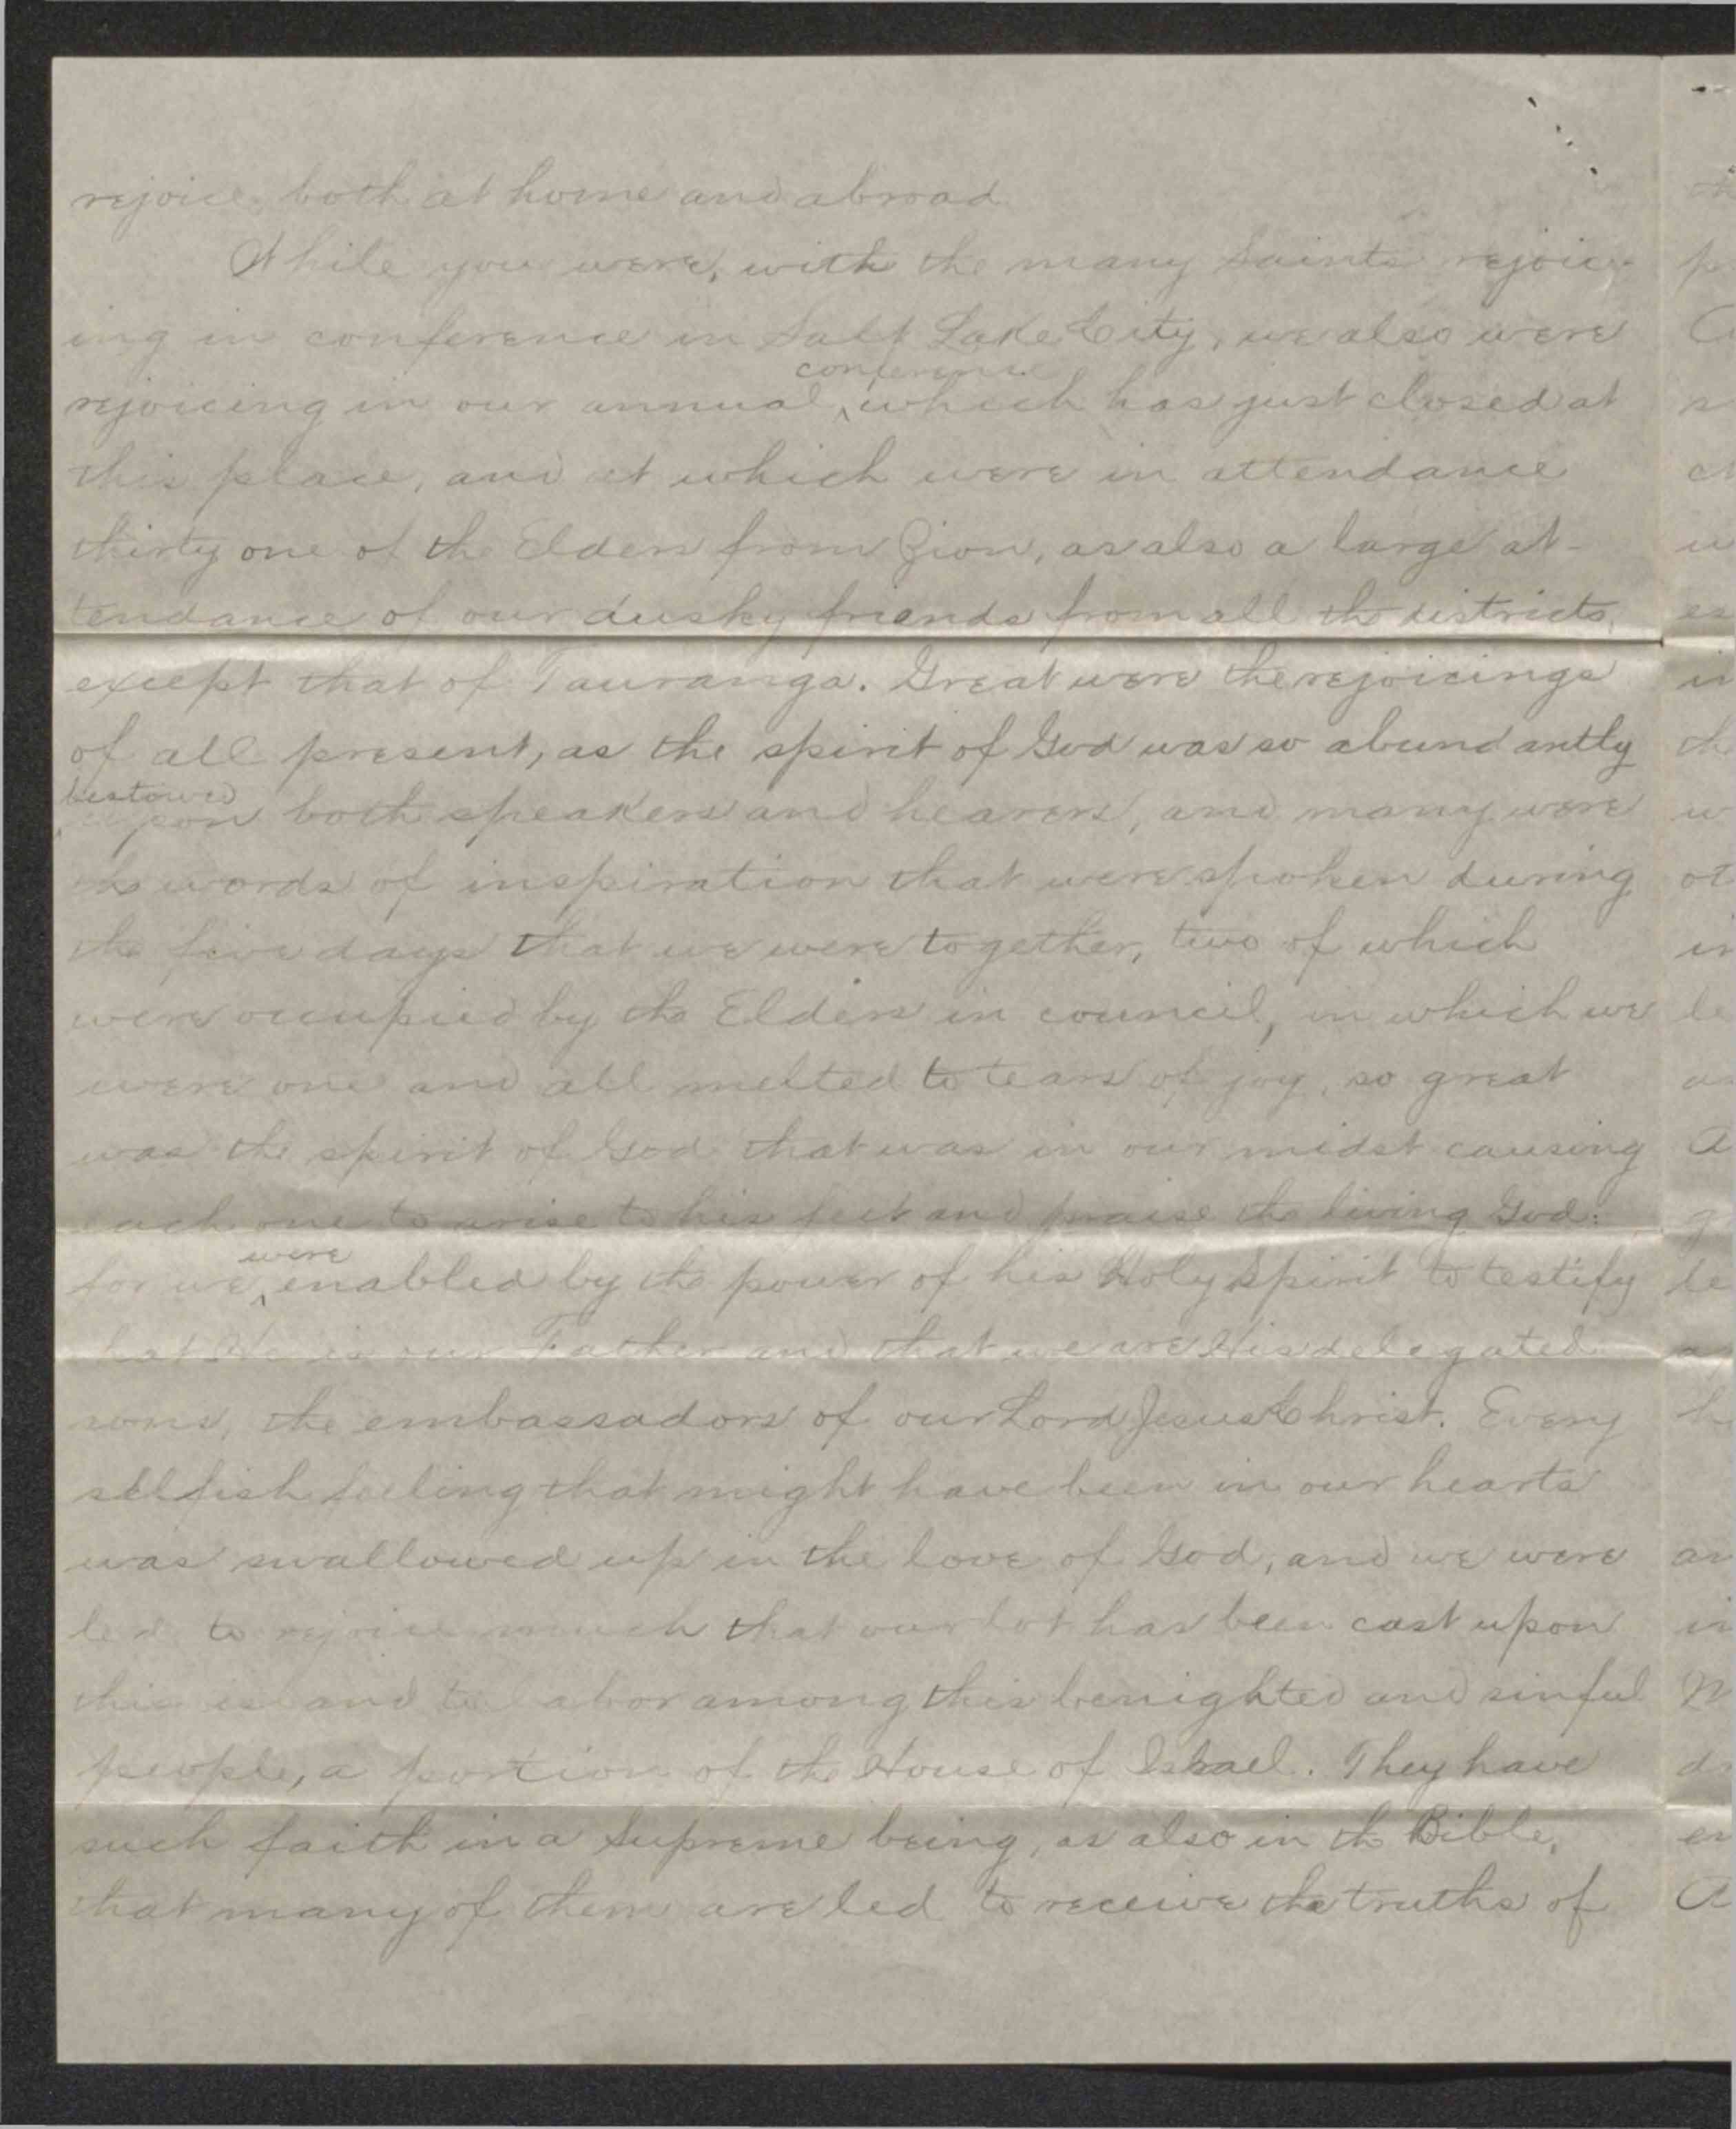 rejoice both at home and abroad
While you were, with the many Saints rejoic-
ing in conference in Salt Lake City, we also were
conference
rejoicing in our annual ‸ which has just closed at
this place, and at which were in attendance
thirty one of the Elders from Zion, as also a large at-
tendance of our dusky friends from all the districts,
except that of Tauranga. Great were the rejoicings
of all present, as the spirit of God was so abundantly
bestowed
upon both speakers and hearers, and many were
the words of inspiration that were spoken during
the five days that we were together, two of which
were occupied by the Elders in council, in which we
were one and all melted to tears of joy, so great
was the spirit of God that was in our midst causing
each one to arise to his feet and praise the living God:
were
for we ‸ enabled by the power of his Holy Spirit to testify
that He is our Father and that we are His delegated
sons, the embassadors of our Lord Jesus Christ. Every
selfish feeling that might have been in our hearts
was swallowed up in the love of God, and we were
led to rejoice much that our lot has been cast upon
this island to labor among this benighted and sinful
people, a portion of the House of Israel. They have
such faith in a Supreme being, as also in the Bible,
that many of them are led to receive the truths of